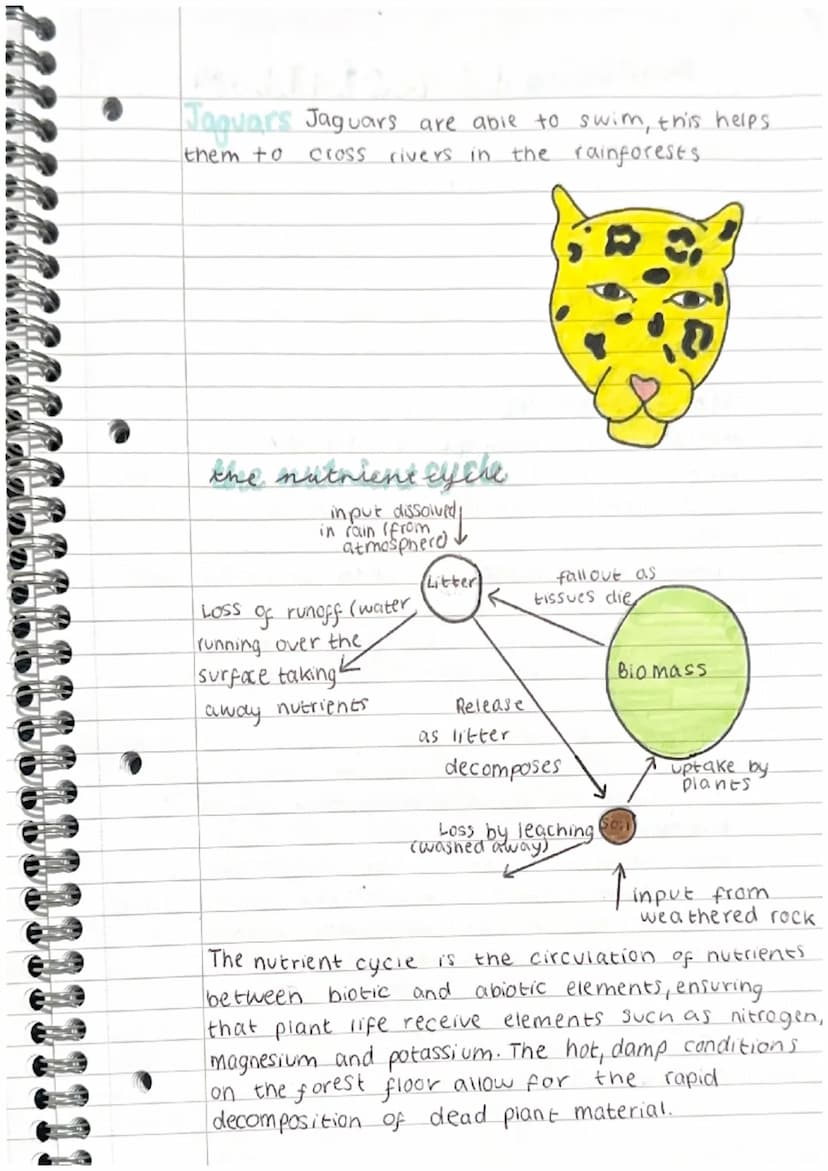 Jaguars Jaguars are able to swim, this helps
them to cross rivers in the rainforests
the nutrient cycle
input dissolved
in rain (from
atmosphere)
Litter
fallout as
tissues die
Loss of runoff (water
running over the
surface taking
away nutrients
Biomass
Release
as litter
decomposes
uptake by
plants
Soil
Loss by leaching
(washed away)
input from
weathered rock
The nutrient cycle is the circulation of nutrients
between biotic and abiotic elements, ensuring
that plant life receive elements such as nitrogen,
magnesium and potassium. The hot, damp conditions
on the forest floor allow for the rapid
decomposition of dead plant material.